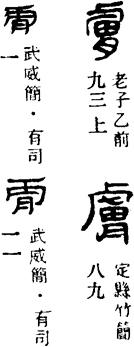 膚
老子乙前
九三上
膚
定縣竹簡
八九
武威簡·有司
一
武威簡·有司
一一